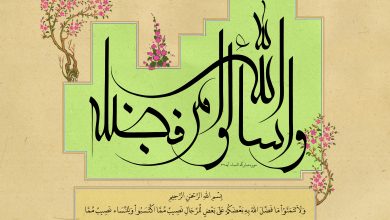 واسألوا الله من فضله
بِسْمِ اللهِ الرَّحْمنِ الرَّحِيمِ
وَلَا تَتَمَنَّوْا مَا فَضَّلَ اللهُ بِهِ بَعْضَكُمْ عَلَى بَعْضٍ لِلرِّجَالِ نَصِيبٌ مِمَّا اكْتَسَبُوا وَلِلنِّسَاءِ نَصِيبٌ مِمَّا